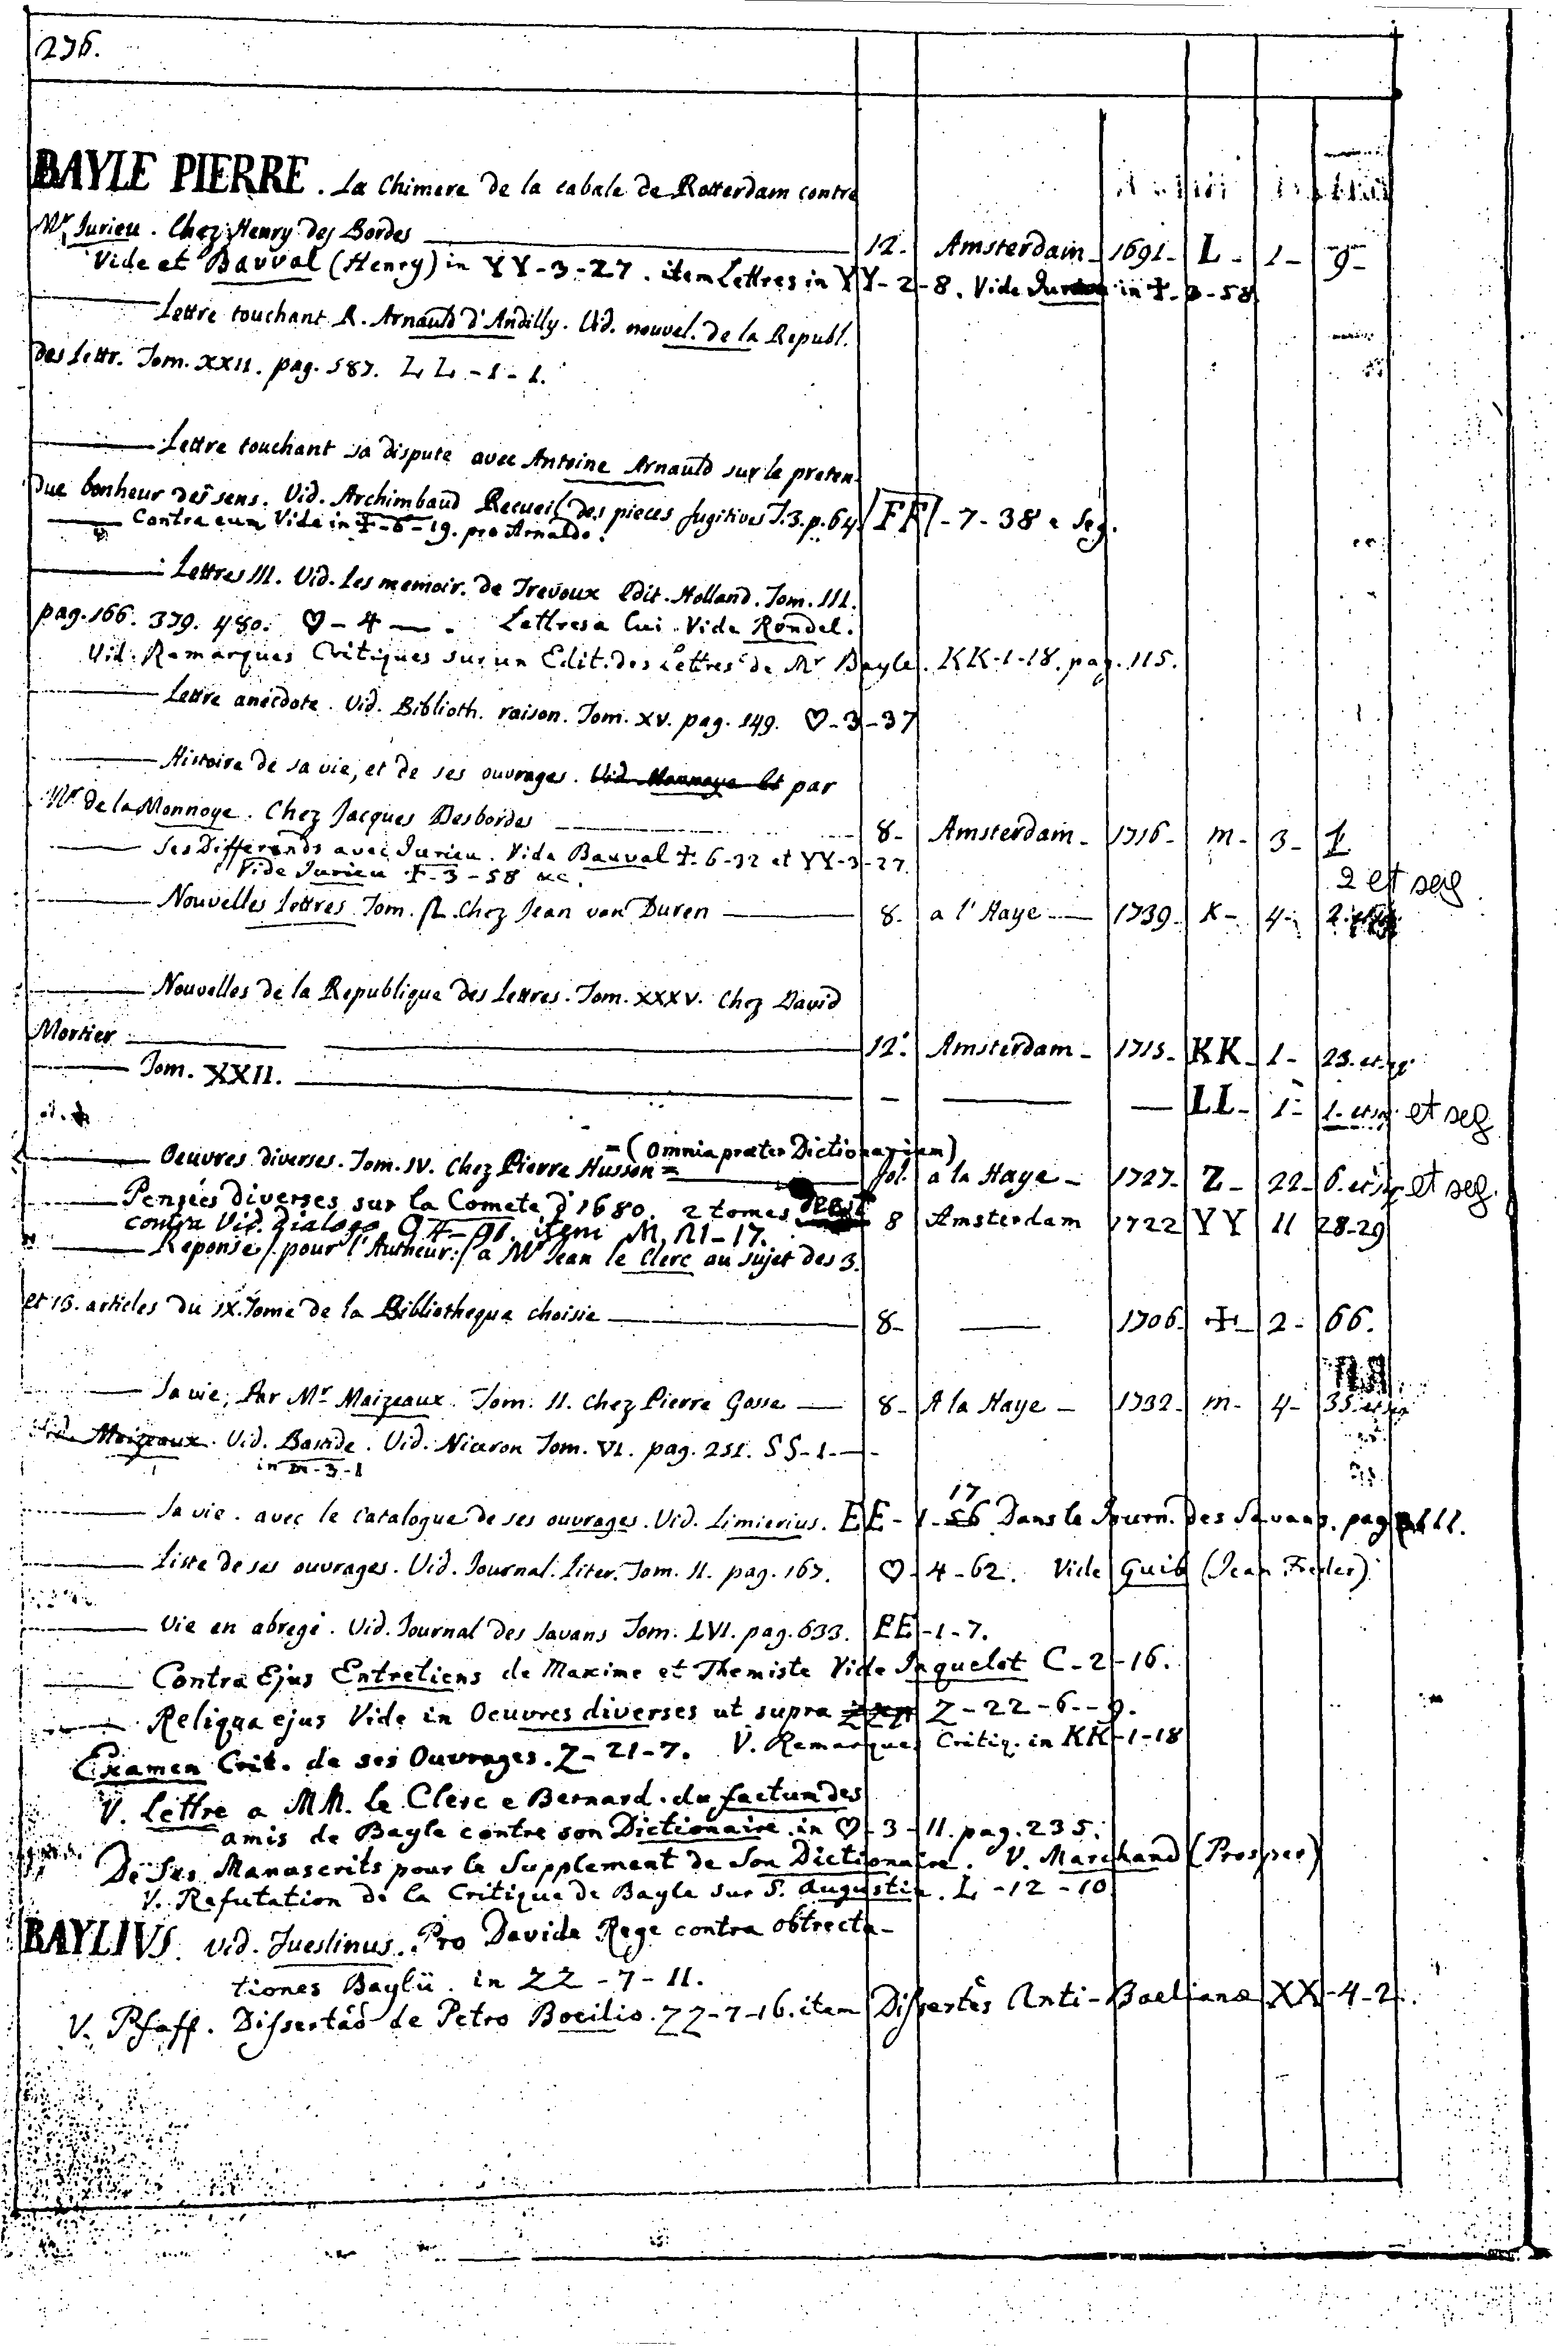 276.
BAYLE PIERRE. La Chimere de la cabale de Rotterdam contre
Mr Jurieu. Chez Henry des Bordes 12. Amsterdam 1691. L - 1 - 9 -
Vide et Bauval (Henry) in YY-3-27. item Lettres in YY-2-8. Vide in ‡-3-58
Lettre touchant R. Arnauld d'Andilly. Vid. nouvel. de la Republ.
des Lettr. Tom. XXII. pag. 587. LL-1-1.
Lettre touchant sa dispute avec Antoine Arnauld sur le preten-
due bonheur des sens. Vid. Archimbaud Recueil des pieces fugitives T.3.p.64. FF-7-38 e seq.
Contra eum Vide in ‡-6-19. pro Arnaldo.
Lettres III. Vid. Les memoir. de Trevoux Edit. Holland. Tom. III.
pag. 166. 379. 480. ♡-4 —. Lettres a lui. Vide Rondel.
Vid. Remarques Critiques sur un Edit. des Lettres de Mr Bayle. KK-1-18. pag. 115.
Lettre anecdote. Vid. Biblioth. raison. Tom. XV. pag. 149. ♡-3-37
Histoire de sa vie, et de ses ouvrages. Vid. Monnaye par
Mr de la Monnoye. Chez Jacques Desbordes 8- Amsterdam - 1716- m- 3- 1
Ses Differends avec Jurieu. Vide Bauval ‡-6-32 et YY-3-27.
Vide Jurieu ‡-3-58 &c.
2 et seq
Nouvelles Lettres Tom. II. Chez Jean van Duren 8. a l'Haye 1739. K- 4-
Nouvelles de la Republique des Lettres. Tom. XXXV. Chez David
Mortier 12. Amsterdam - 1715- KK- 1- 23. et sq.
Tom. XXII. - LL- 1- 1. et sq. et seq
= (Omnia præter Dictionarium)
Oeuvres diverses. Tom. IV. Chez Pierre Husson = fol. a la Haye - 1727- Z- 22- 6. et sq. et seq.
Pensées diverses sur la Comete d'1680. 2 tomes 8 Amsterdam 1722 YY 11 28-29
contra Vid. Dialogo item
Reponse /: pour l'Autheur :/ a Mr Jean le Clerc au sujet des 3.
et 15. articles du IX. Tome de la Bibliotheque choisie 8- 1706. ‡- 2- 66.
Sa vie, Par Mr Maizeaux. Tom. II. Chez Pierre Gosse 8- A la Haye - 1732- m- 4- 35. et sq.
Vide Maizeaux. Vid. Bastide. Vid. Niceron Tom. VI. pag. 251. SS-1-
in m-3-1
17
Sa vie. avec le catalogue de ses ouvrages. Vid. Limierius. EE-1-56 Dans le Journ. des Savans. pag.
Liste de ses ouvrages. Vid. Journal. Liter. Tom. II. pag. 167. ♡-4-62. Vide Guib (Jean Freder)
Vie en abregé. Vid. Journal des Savans Tom. LVI. pag. 633. EE-1-7.
Contra Ejus Entretiens de Maxime et Themiste Vide Jaquelot C-2-16.
Reliqua ejus Vide in Oeuvres diverses ut supra Z-22-6--9.
Examen Crit. de ses Ouvrages. Z-21-7. V. Remarques Critiq. in KK-1-18
V. Lettre a MM. le Clerc e Bernard. du factum des
amis de Bayle contre son Dictionaire. in ♡-3-11. pag. 235.
De Ses Manuscrits pour le Supplement de Son Dictionaire. V. Marchand (Prosper)
V. Refutation de la Critique de Bayle sur S. Augustin. L-12-10
BAYLIVS. vid. Fueslinus. Pro Davide Rege contra obtrecta-
tiones Baylii. in ZZ-7-11.
V. Pfaff. Dissertaō de Petro Boeilio. ZZ-7-16. item Dissertēs Anti-Baelianæ XX-4-2.